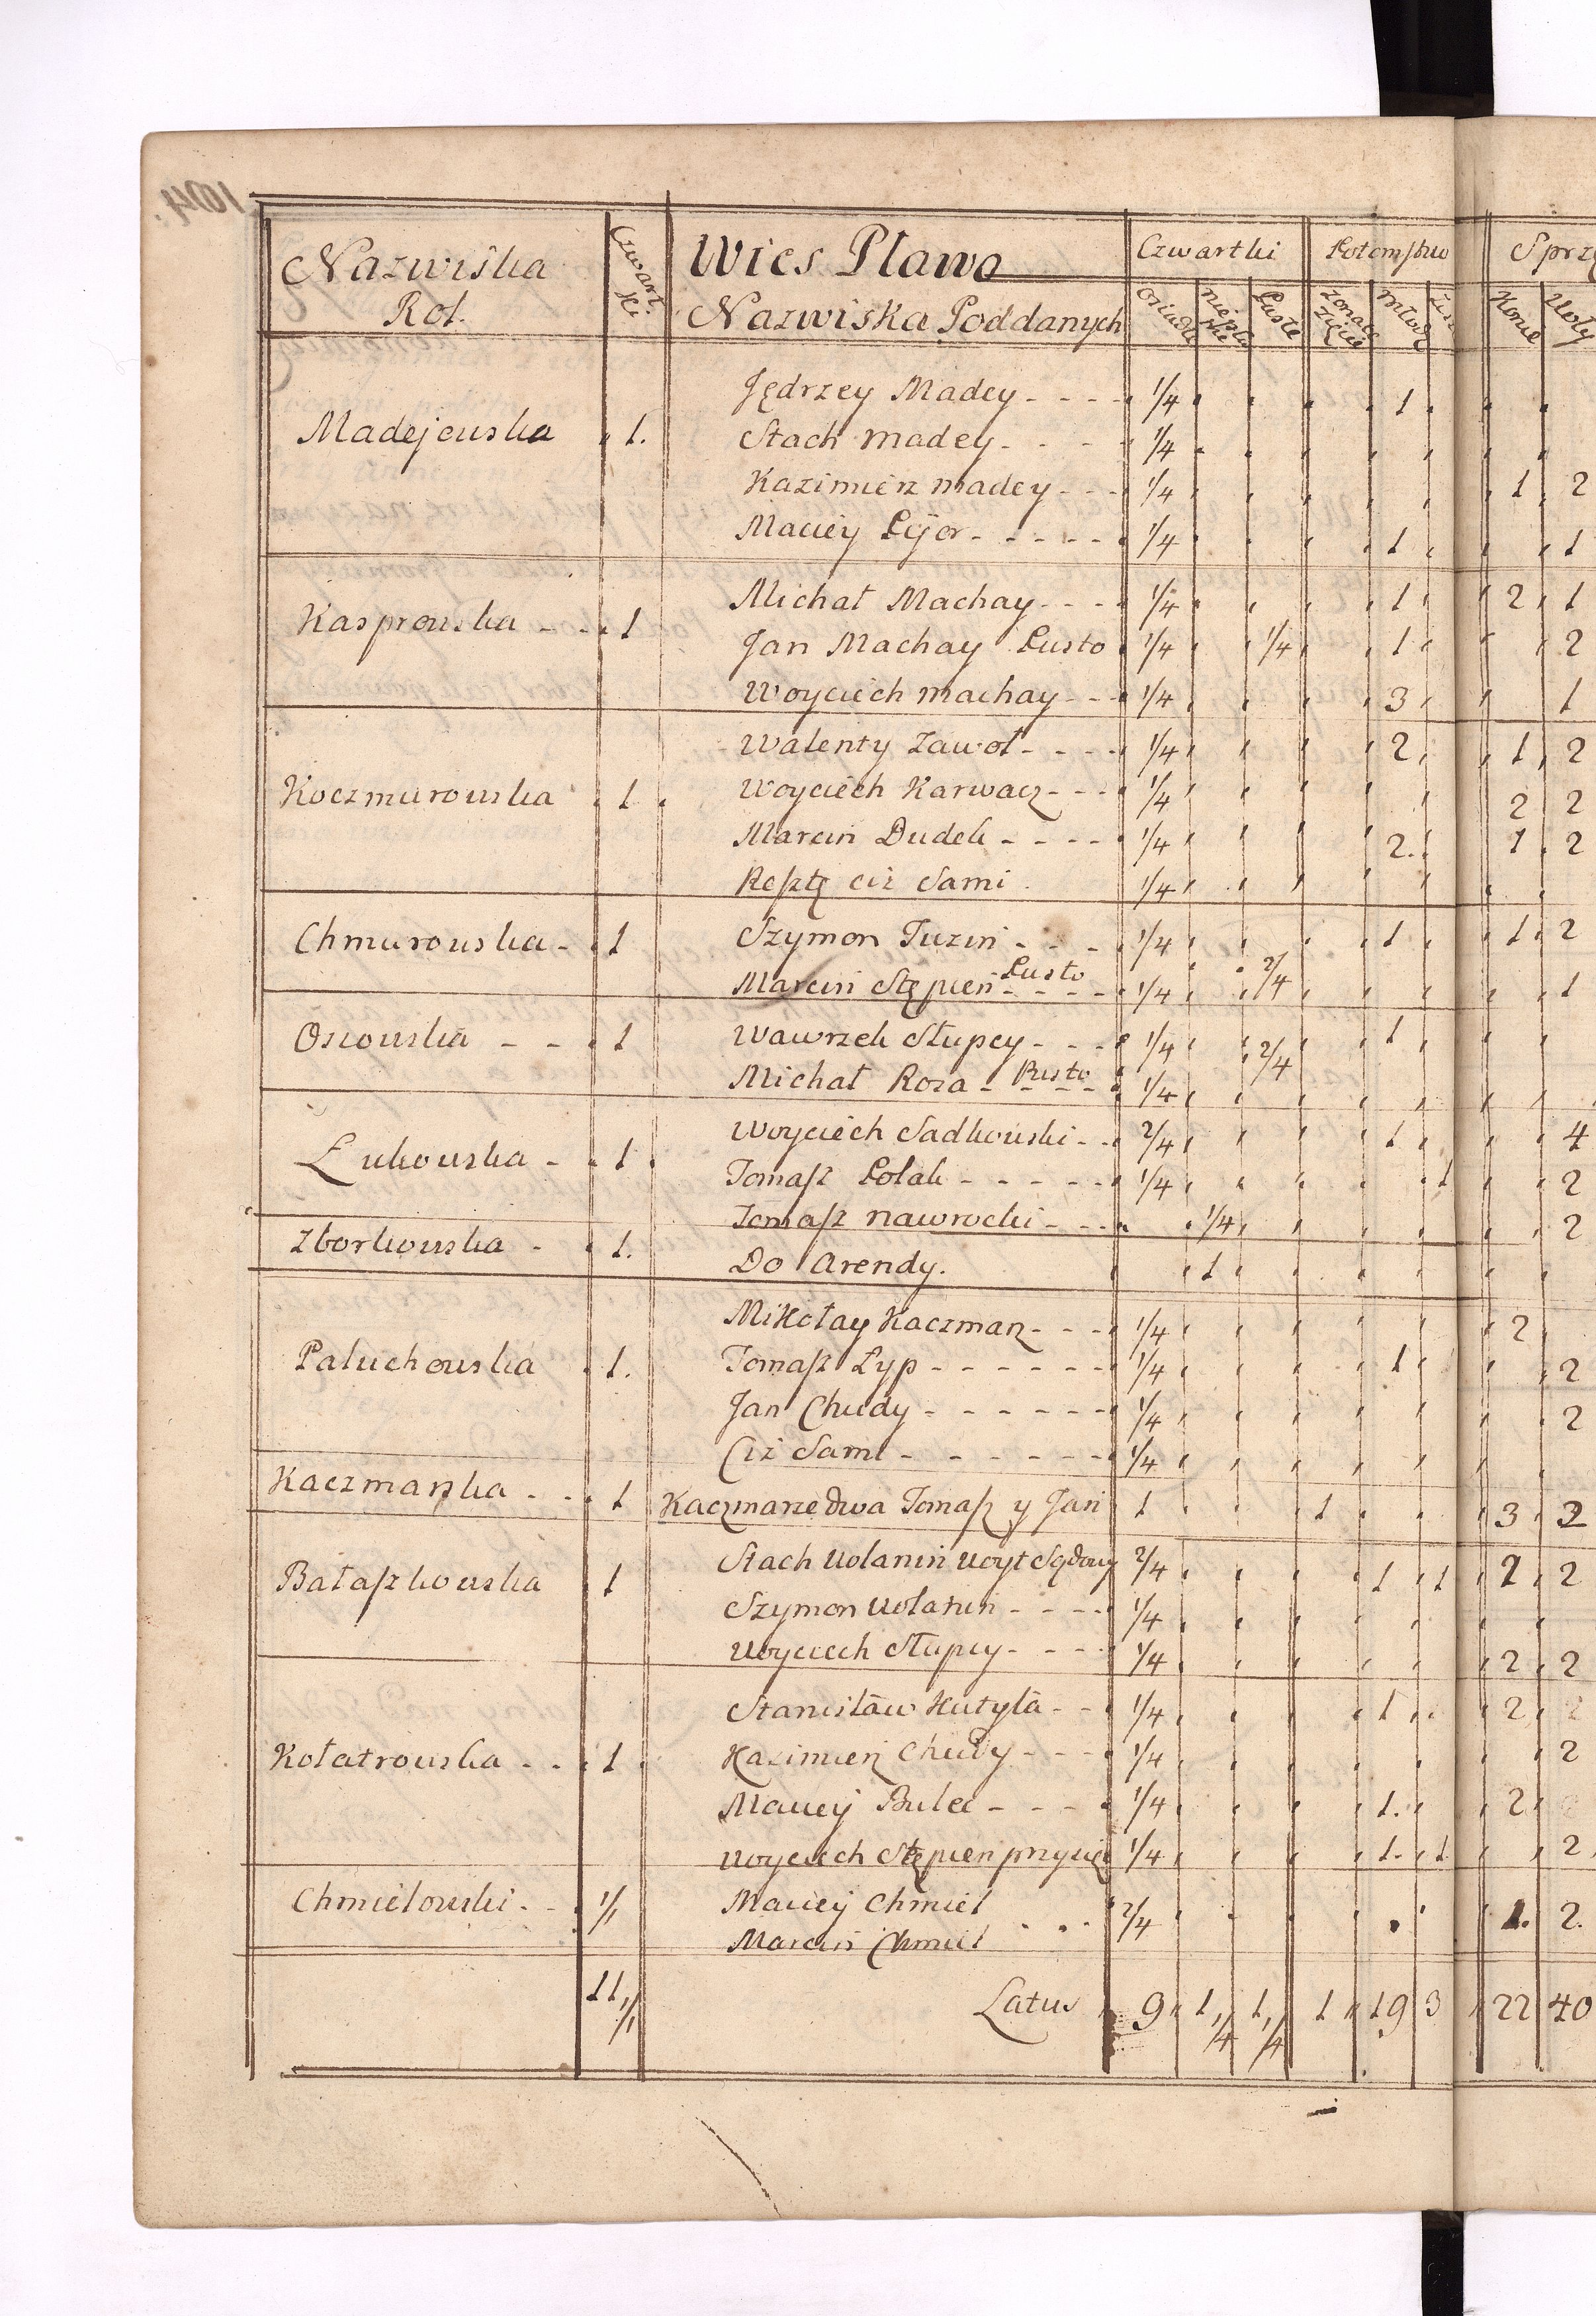 Nazwiska Rol.
Czwartki
Wies Pławo
Nazwiska Poddanych
Czwartki
Potomstwo
osiadłe
Puste
Konie
Woły
Jędrzey Madey - - - - 1/4 1
Madejowska 1.
Stach Madey - - - 1/4
Kazimierz Madey - - - 1/4 1 2
Maciey Pyjor - - - - - 1/4 1 1
Michał Machay - - - - 1/4 1 2 1
Kasprowska - - - 1
Jan Machay Pusto 1/4 1/4 1 2
Woyciech Machay - - - 1/4 3 1
Walenty Zawoł - - - - 1/4 2 1 2
Koczmurowska 1
Woyciech Karwacz - - - 1/4 2 2
Marcin Dudek - - - - 1/4 2. 1 2
Resztę ciż Sami 1/4
Chmurowska - 1
Szymon Tuzin - - - 1/4 1 1 2
Marcin Stępien Pusto - - - - 1/4 2/4 1
Osiowska - - 1
Wawrzek Słupey - - - 1/4 2/4 1
Michał Roza - Pusto - - - 1/4
Woyciech Sadkowski - - 2/4 1 4
Łukowska - 1
Tomasz Polak - - - - - 1/4 1 2
Tomasz Nawrocki - - - 1/4 2
Zborkowska - 1.
Do Arendy. 1
Mikołay Kaczmarz - - - 1/4 2
Paluchowska 1.
Tomasz Łyp - - - - - - 1/4 1 2
Jan Chudy - - - - - - 1/4 2
Ciż Sami - - - - - - 1/4
Kaczmarska - - 1
Kaczmarze dwa Tomasz y Jan 1 1 3 2
Stach Wolanin Woyt Sądowy 2/4 1 1 2 2
Bałaszkowska 1
Szymon Wolanin - - - - 1/4
Woyciech Słupey - - - - 1/4 2 2
Stanisław Kutyła - - 1/4 1 2 2
Kołatrowska - - 1
Kazimierz Chudy - - - 1/4 2
Maciey Bulec - - - - 1/4 1. 2
Woyciech Stępien 1/4 1. 1 2
Chmielowski - - 1/1
Maciey Chmiel 2/4 1. 2.
Marcin Chmiel
11 1/1
Latus 9 1 1/4 1 1/4 1 19 3 22 40